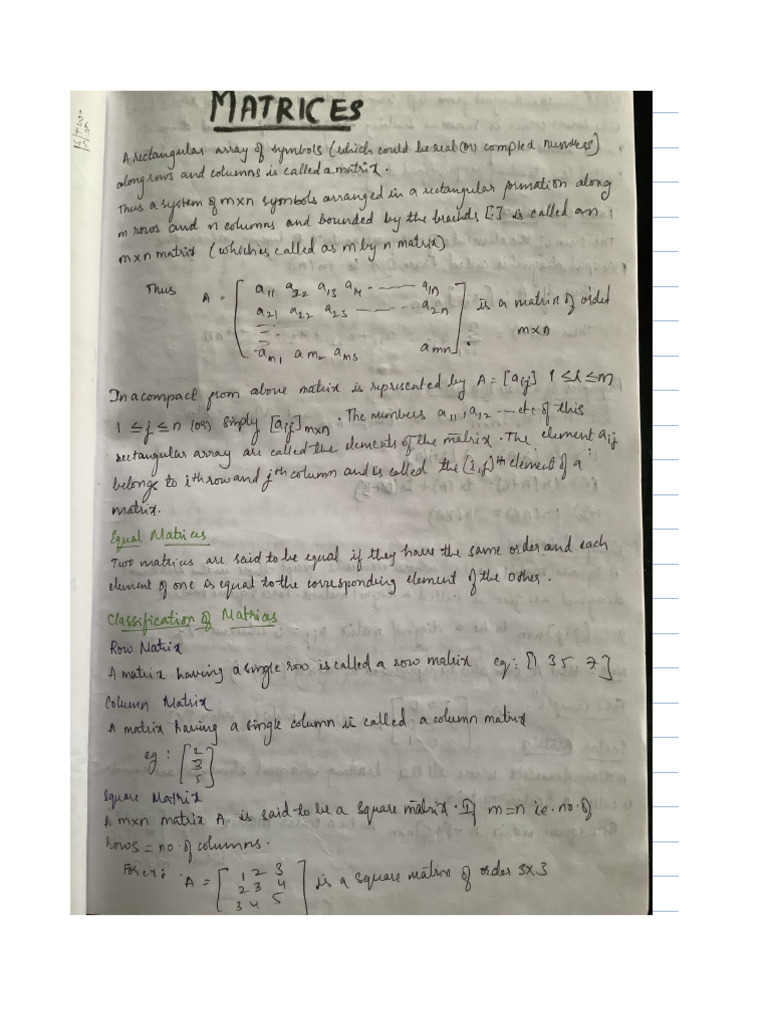 MATRICES
A rectangular array of symbols (which could be real (or) compled numbers)
along rows and columns is called a matrix.
Thus a system of m×n symbols arranged in a rectangular formation along
m rows and n columns and bounded by the brackets [:] is called an
m×n matrix (which is called as m by n matrix)
Thus A = [ a11 a22 a13 a14 ------ a1n
a21 a22 a23 ------ a2n
am1 am2 am3 amn ] is a matrix of order
m×n
In a compact from above matrix is represented by A = [aij] 1 ≤ i ≤ m
1 ≤ j ≤ n (or) simply [aij]m×n. The numbers a11, a12 --- etc of this
rectangular array are called the elements of the matrix. The element aij
belongs to ith row and jth column and is called the (i,j)th element of a
matrix.
Equal Matrices
Two matrices are said to be equal if they have the same order and each
element of one is equal to the corresponding element of the other.
Classification of Matrices
Row Matrix
A matrix having a single row is called a row matrix eg: [1 3 5 7]
Column Matrix
A matrix having a single column is called a column matrix
eg: [ 2
3
5 ]
Square Matrix
A m×n matrix A is said to be a square matrix. If m=n i.e. no. of
rows = no. of columns.
For ex: A = [ 1 2 3
2 3 4
3 4 5 ] is a square matrix of order 3×3